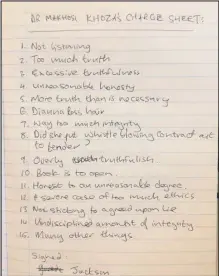 DR MAKHOSI KHOZA'S CHARGE SHEET:
1. Not listening
2. Too much truth
3. Excessive truthfulness
4. Unreasonable honesty
5. More truth than is necessary
6. Dianna Bus hair
7. Way too much integrity
8. Did she put whistle blowing contract out
to tender?
9. Overly truthfulish
10. Book is to open.
11. Honest to an unreasonable degree.
12. A severe case of too much ethics
13. Not sticking to agreed upon lie
14. Undisciplined amount of integrity
15. Many other things
Signed:
Jackson